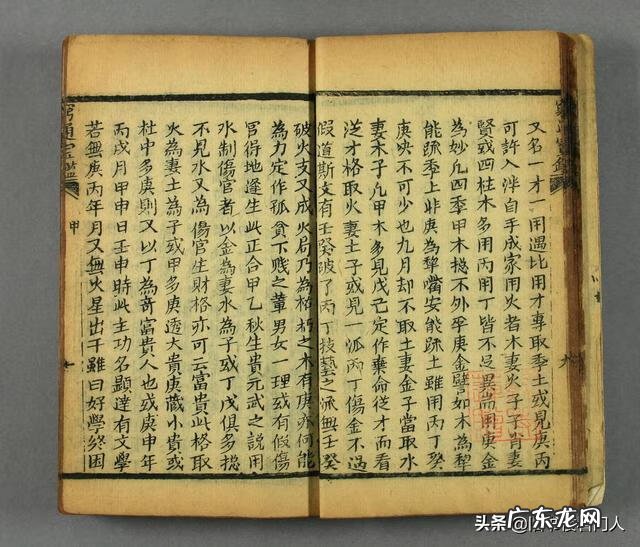 又名一才一用遇比用才專取季土或見庚丙
可許入泮自手成家用火者木妻火子子肖妻
賢或四柱木多用丙用丁皆不足異耑用庚金
為妙凡四季甲木總不外乎庚金譬如木為犂
能疏季上非庚為犂嘴安能疏土雖用丙丁癸
庚央不可少也九月却不取土妻金子當取水
妻木子凡甲木多見戊己定作棄命從才而看
從才格取火妻土子或見一派丙丁傷金不過
假道斯文有壬癸破了丙丁技藝之流無壬癸
破火支又成火局乃為枯朽之木有庚亦何能
為力定作孤貧下賤之輩男女一理或有假傷
官得地逢生此正合甲乙秋生貴元武之說用
水制傷官者以金為妻水為子或丁戊俱多總
不見水又為傷官生財格亦可云富貴此格取
火為妻土為子或甲多庚透大貴庚藏小貴或
杜中多庚則又以丁為奇富貴人也或庚申年
丙戌月甲申日壬申時此主功名顯達有文學
若無庚丙年月又無火星出干雖曰好學終困
窮通寶鑑
甲
頭条
广东龙网